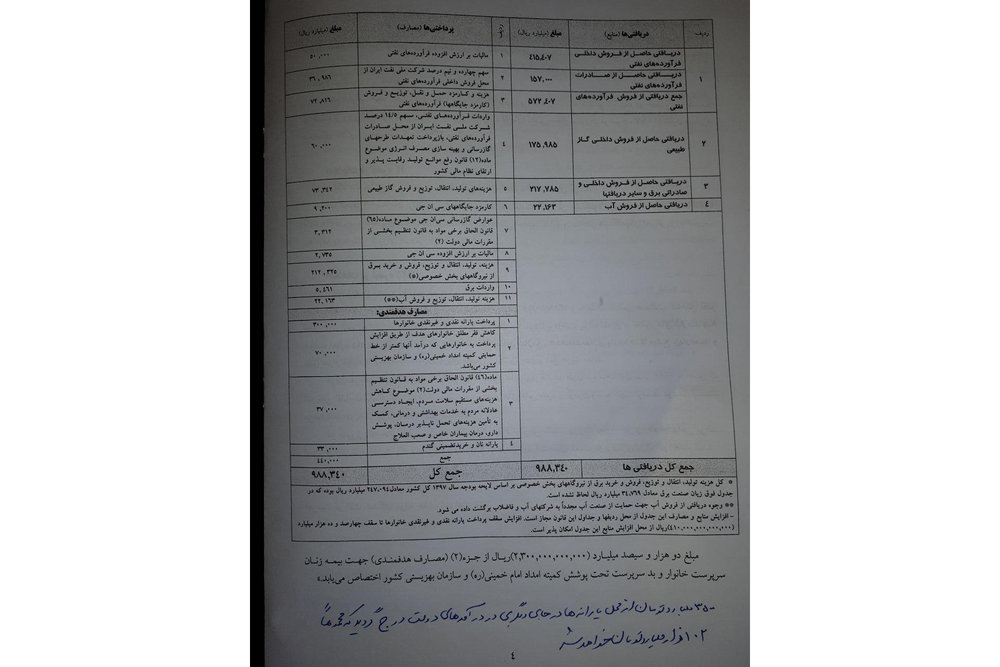 ردیف دریافتی‌ها (منابع) مبلغ (میلیارد ریال) ردیف پرداختی‌ها (مصارف) مبلغ (میلیارد ریال)
۱ دریافتی حاصل از فروش داخلی فرآورده‌های نفتی ۴۱۵,۴۰۷
دریافتی حاصل از صادرات فرآورده‌های نفتی ۱۵۷,۰۰۰
جمع دریافتی از فروش فرآورده‌های نفتی ۵۷۲,۴۰۷
۲ دریافتی حاصل از فروش داخلی گاز طبیعی ۱۷۵,۹۸۵
۳ دریافتی حاصل از فروش داخلی و صادراتی برق و سایر دریافتیها ۲۱۷,۷۸۵
۴ دریافتی حاصل از فروش آب ۲۲,۱۶۳
۱ مالیات بر ارزش افزوده فرآورده‌های نفتی ۵۰,۰۰۰
۲ سهم چهارده و نیم درصد شرکت ملی نفت ایران از
محل فروش داخلی فرآورده‌های نفتی ۳۶,۹۸۶
۳ هزینه و کارمزد حمل و نقل، توزیع و فروش
(کارمزد جایگاهها) فرآورده‌های نفتی ۷۲,۸۱۶
۴ واردات فرآورده‌های نفتی، سهم ۱۴/۵ درصد
شرکت ملی نفت ایران از محل صادرات
فرآورده‌های نفتی، بازپرداخت تعهدات طرحهای
گازرسانی و بهینه سازی مصرف انرژی موضوع
ماده(۱۲) قانون رفع موانع تولید رقابت پذیر و
ارتقای نظام مالی کشور ۶۰,۰۰۰
۵ هزینه‌های تولید، انتقال، توزیع و فروش گاز طبیعی ۷۳,۳۴۲
۶ کارمزد جایگاههای سی ان جی ۹,۲۰۰
۷ عوارض گازرسانی سی‌ان جی موضوع ماده(۶۵)
قانون الحاق برخی مواد به قانون تنظیم بخشی از
مقررات مالی دولت (۲) ۳,۳۱۲
۸ مالیات بر ارزش افزوده سی ان جی ۲,۷۳۵
۹ هزینه، تولید، انتقال و توزیع، فروش و خرید برق
از نیروگاههای بخش خصوصی(*) ۲۱۲,۳۲۵
۱۰ واردات برق ۵,۴۶۱
۱۱ هزینه تولید، انتقال، توزیع و فروش آب(**) ۲۲,۱۶۳
مصارف هدفمندی:
۱ پرداخت یارانه نقدی و غیرنقدی خانوارها ۳۰۰,۰۰۰
۲ کاهش فقر مطلق خانوارهای هدف از طریق افزایش
پرداخت به خانوارهایی که درآمد آنها کمتر از خط
حمایتی کمیته امداد خمینی(ره) و سازمان بهزیستی
کشور می‌باشد. ۷۰,۰۰۰
۳ ماده(۴۶) قانون الحاق برخی مواد به قانون تنظیم
بخشی از مقررات مالی دولت(۲) موضوع کاهش
هزینه‌های مستقیم سلامت مردم، ایجاد دسترسی
عادلانه مردم به خدمات بهداشتی و درمانی، کمک
به تأمین هزینه‌های تحمل ناپذیر درمان، پوشش
دارو، درمان بیماران خاص و صعب العلاج ۳۷,۰۰۰
۴ یارانه نان و خریدتضمینی گندم ۳۳,۰۰۰
جمع ۴۴۰,۰۰۰
جمع کل دریافتی ها ۹۸۸,۳۴۰ جمع کل ۹۸۸,۳۴۰
* کل هزینه تولید، انتقال و توزیع، فروش و خرید برق از نیروگاههای بخش خصوصی بر اساس لایحه بودجه سال ۱۳۹۷ کل کشور معادل ۲۴۷,۰۹۴ میلیارد ریال بوده که در
جدول فوق زیان صنعت برق معادل ۳۴,۷۶۹ میلیارد ریال لحاظ نشده است.
** وجوه دریافتی از فروش آب جهت حمایت از صنعت آب مجدداً به شرکتهای آب و فاضلاب برگشت داده می شود.
- افزایش منابع و مصارف این جدول از محل ردیفها و جداول این قانون مجاز است. افزایش سقف پرداخت یارانه نقدی و غیرنقدی خانوارها تا سقف چهارصد و ده هزار میلیارد
(۴۱۰,۰۰۰,۰۰۰,۰۰۰,۰۰۰)ریال از محل افزایش منابع این جدول امکان پذیر است.
مبلغ دو هزار و سیصد میلیارد (۲,۳۰۰,۰۰۰,۰۰۰,۰۰۰)ریال از جزء(۲) (مصارف هدفمندی) جهت بیمه زنان
سرپرست خانوار و بد سرپرست تحت پوشش کمیته امداد امام خمینی(ره) و سازمان بهزیستی کشور اختصاص می‌یابد.»
از محل یارانه‌ها در جای دیگری در درآمدهای دولت درج گردید که جمعاً
۱۰۲ هزار میلیارد تومان خواهد شد
۴